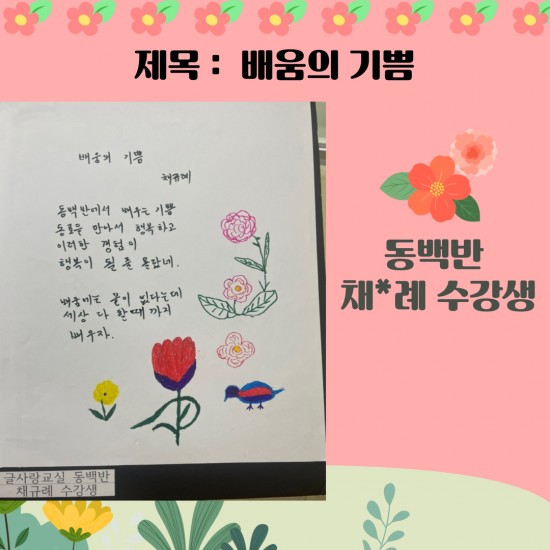 제목 : 배움의 기쁨
배움의 기쁨
채규례
동백반에서 배우는 기쁨
동료을 만나서 행복하고
이러한 경험이
행복이 될 줄 몰랐네.
배움에는 끝이 없다는데
세상 다 할때 까지
배우자.
동백반
채*례 수강생
글사랑교실 동백반
채규례 수강생